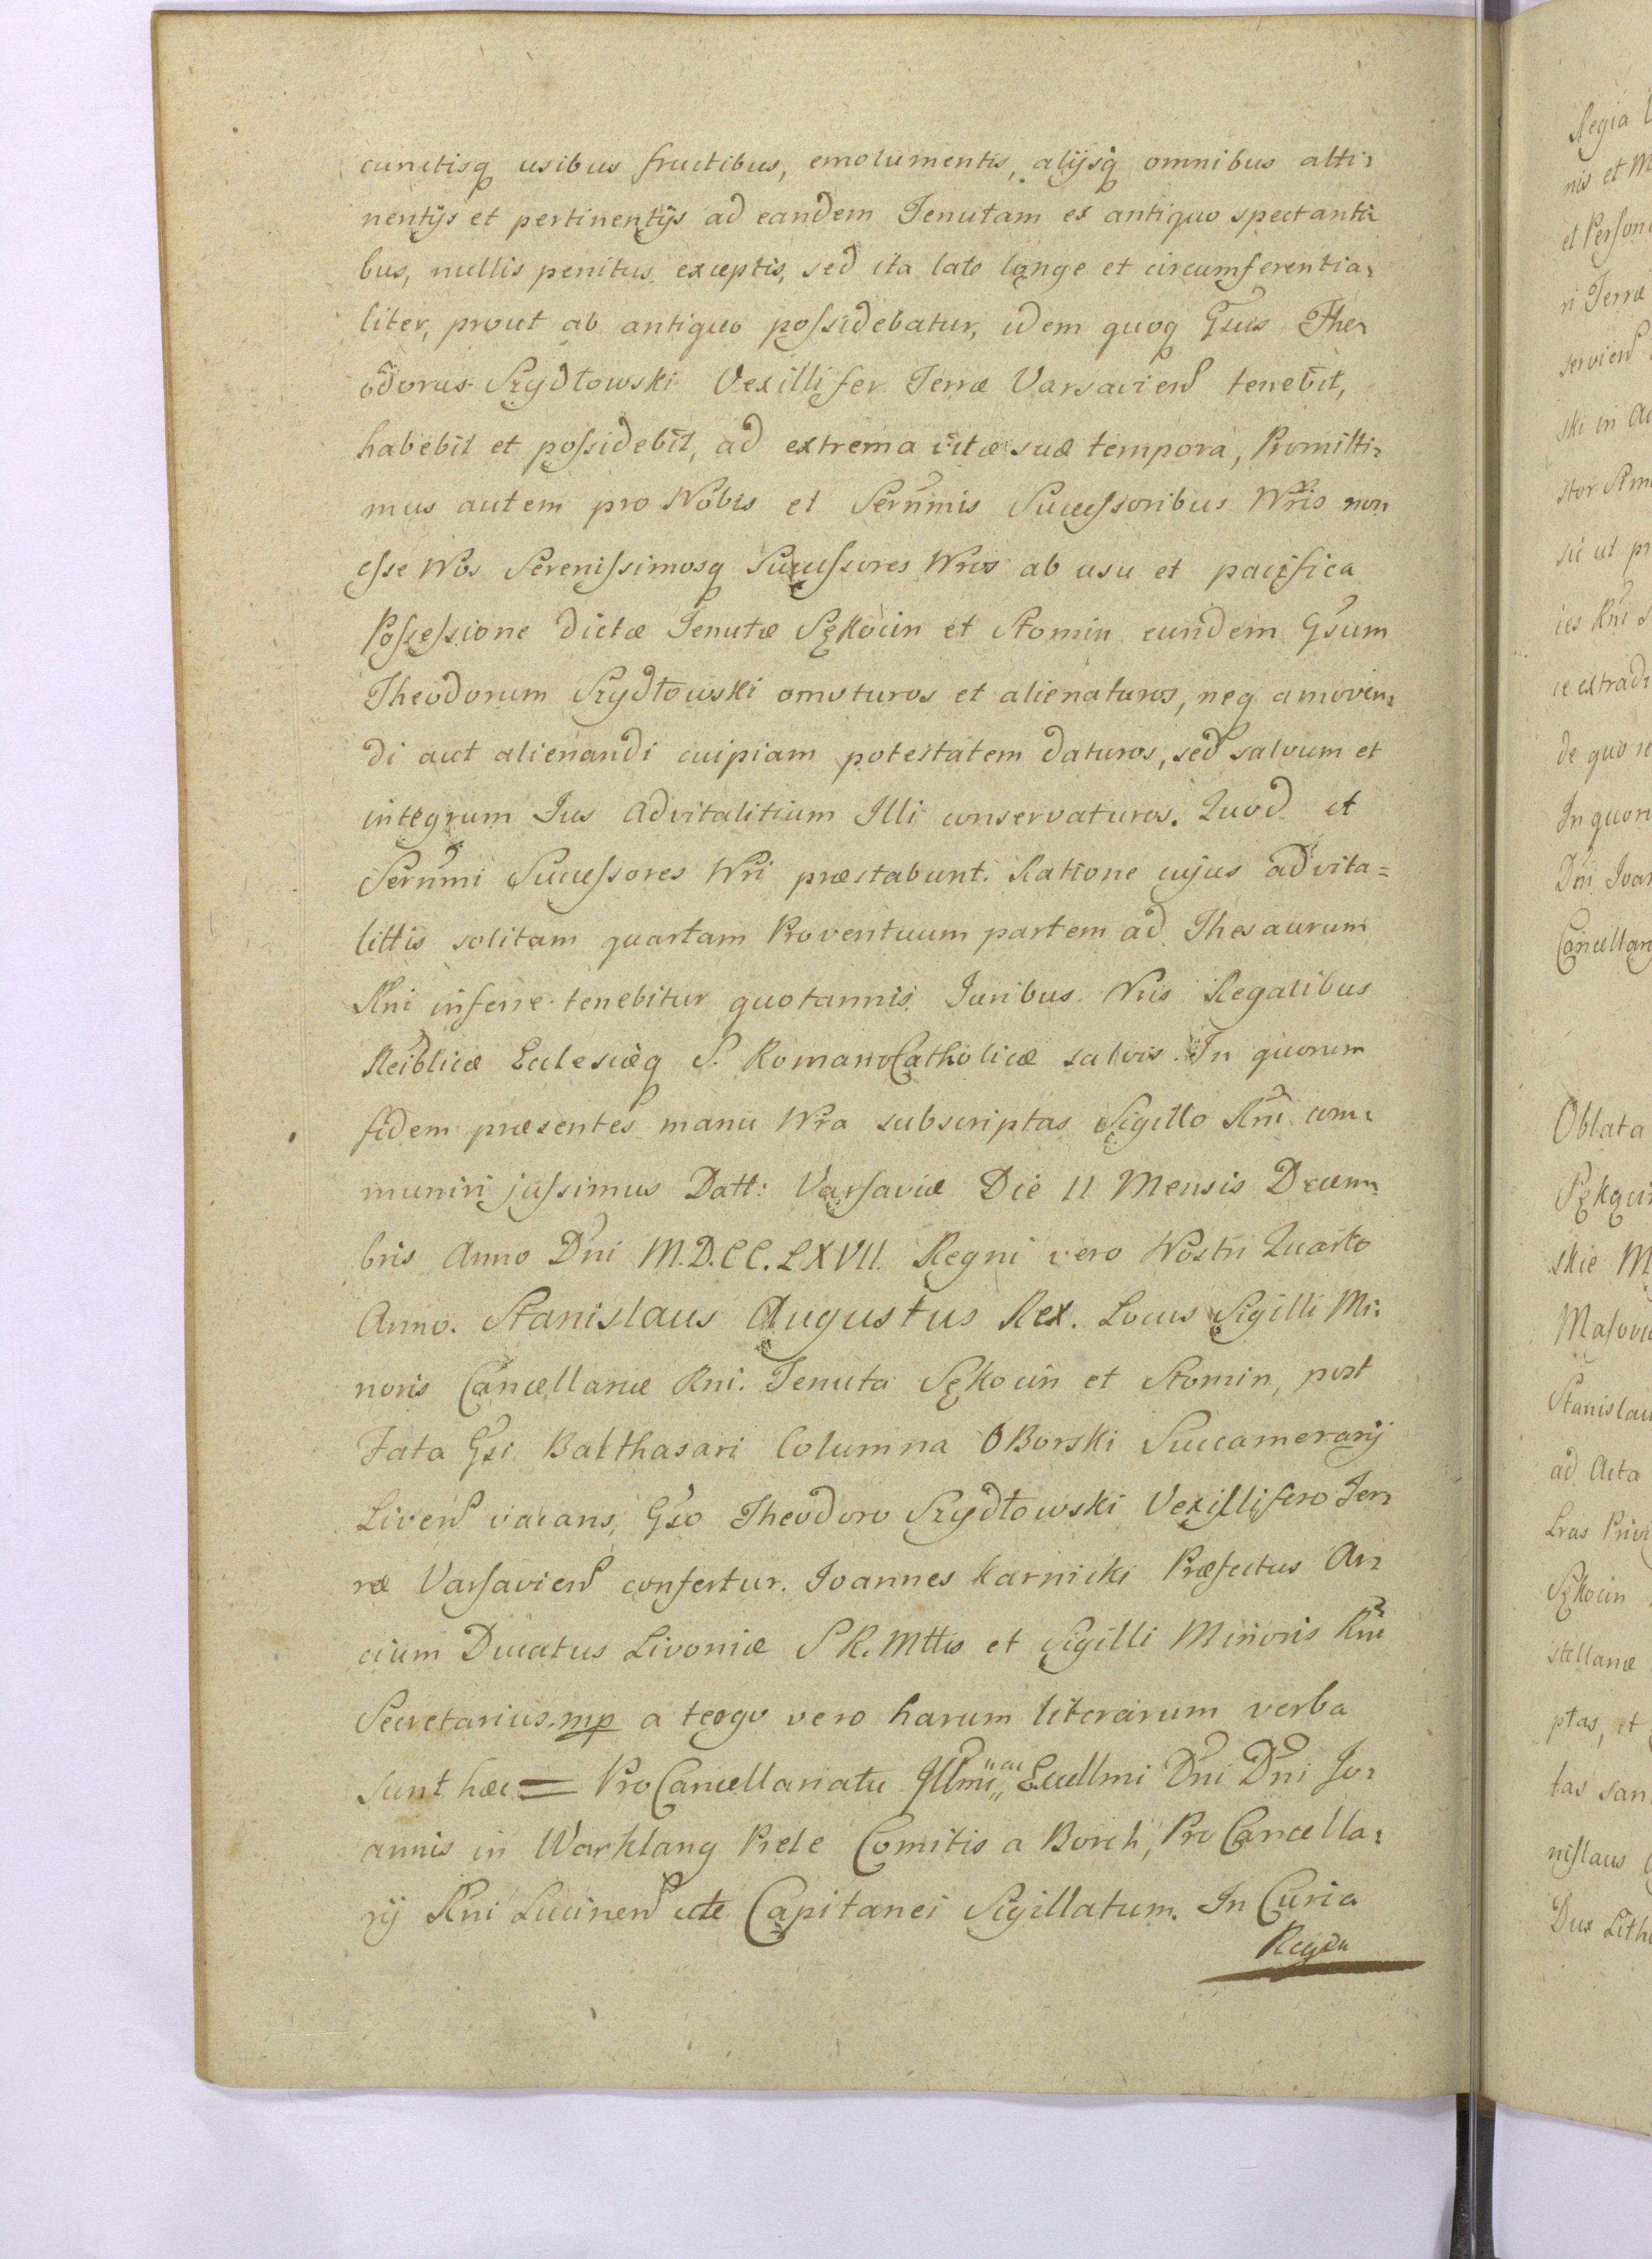 cunctisq usibus fructibus, emolumentis, alijsq omnibus atti-
nentijs et pertinentijs ad eandem Tenutam ex antiquo spectanti-
bus, nullis penitus exceptis, sed ita late longe et circumferentia-
liter, prout ab antiquo possidebatur, idem quoq Gsus The-
odorus Szydłowski Vexillifer Terræ Varsavien tenebit,
habebit et possidebit, ad extrema vitæ suæ tempora, Promitti-
mus autem pro Nobis et Serṅmis Successoribus Nris non
esse Nos Serenissimosq Successores Nros ab usu et pacifica
Possessione dictæ Tenutæ Sękocin et Słomin eundem Gsum
Theodorum Szydłowski amoturos et alienaturos, neq amoven-
di aut alienandi cuipiam potestatem daturos, sed salvum et
integrum Jus advitalitium Illi conservaturos. Quod et
Serṅmi Successores Nri præstabunt. Ratione cujus advita-
littis solitam quartam Proventuum partem ad Thesaurum
Rni inferre tenebitur quotannis. Juribus Nris Regalibus
Reiblicæ Ecclesiæq S. RomanoCatholicæ salvis. In quorum
fidem præsentes manu Nra subscriptas Sigillo Rni com-
muniri jussimus Datt: Varsaviæ Die 11 Mensis Decem-
bris Anno Dni M.D.CC.LXVII. Regni vero Nostri Quarto
Anno. Stanislaus Augustus Rex. Locus Sigilli Mi-
noris Cancellariæ Rni. Tenuta Sękocin et Słomin, post
Fata Gsi Balthasari Columna OBorski Succamerarij
Liven vacans, Gso Theodoro Szydłowski Vexillifero Ter-
ræ Varsavien confertur. Joannes Karnicki Præfectus Ar-
cium Ducatus Livoniæ S R. Mttis et Sigilli Minoris Rni
Secretarius. mp a tergo vero harum literarum verba
sunt hæc = ProCancellariatu Illmi ac Excellmi Dni Dni Jo-
annis in Warklang Prele Comitis a Borch, Pro Cancella-
rij Rni Lucinen etc Capitanei Sigillatum. In Curia
Regia
Regia
nis et M
et Person
ri Terræ
servien
ski in Ac
stor
sic ut pr
ies Rni
ce extradi
de quo re
In quoru
Dni Joan
Cancellar
Oblata
skie M
Masovi
Stanislau
ad Acta
Lras Privi
Sękocin
stellanæ
ptas, et
tas san
nislaus
Dux Lith